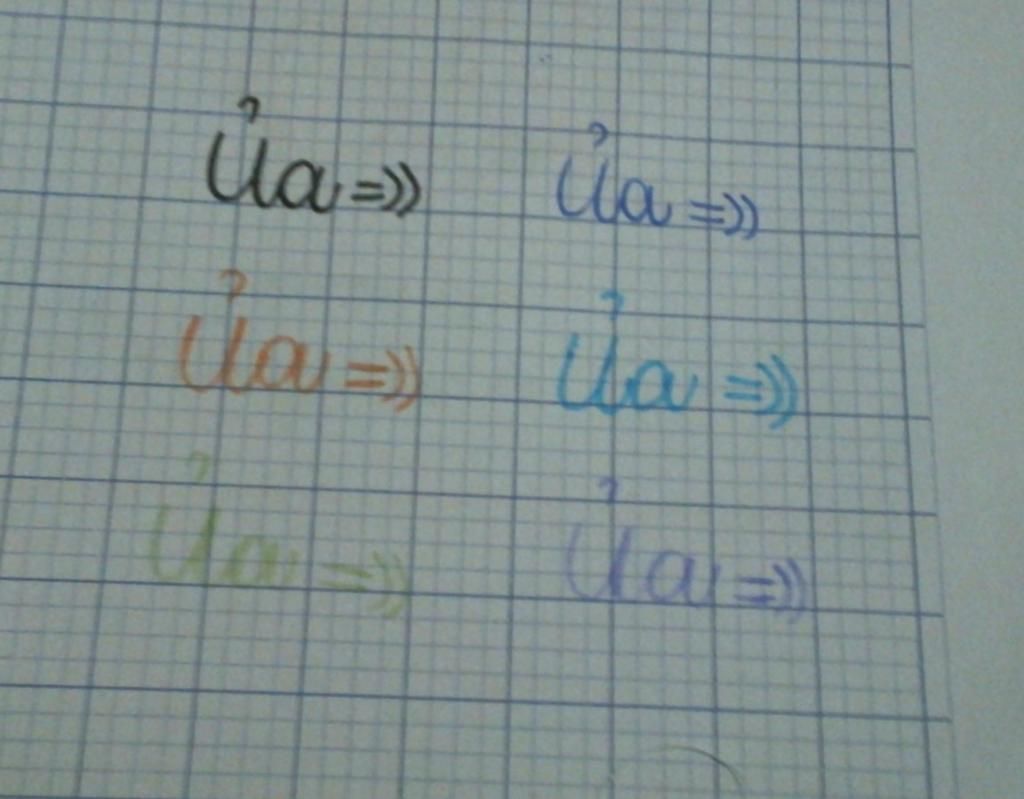 Ủa =)) Ủa =))
Ủa =)) Ủa =))
Ủa =)) Ủa =))